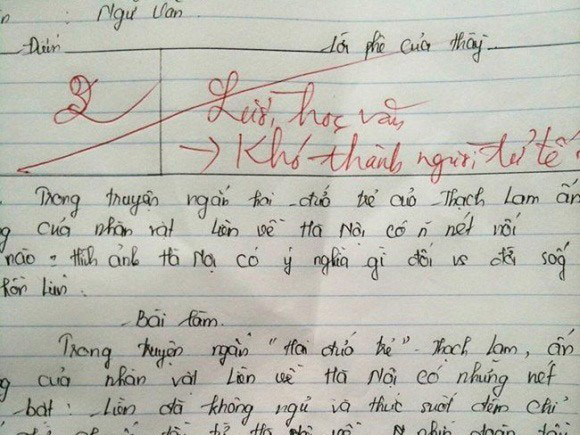 : Ngữ Văn
Điểm
Lời phê của thầy
2
Lười học văn
→ Khó thành người tử tế
Trong truyện ngắn hai đứa trẻ của Thạch Lam ấn
g của nhân vật Liên về Hà Nội có n nét nổi
nào = hình ảnh Hà Nội có ý nghĩa gì đối vs đời sốg
hồn Liên.
Bài làm.
Trong truyện ngắn "Hai đứa trẻ" - Thạch Lam, ấn
g của nhân vật Liên về Hà Nội có những nét
bật: Liên đã không ngủ và thức suốt đêm chỉ